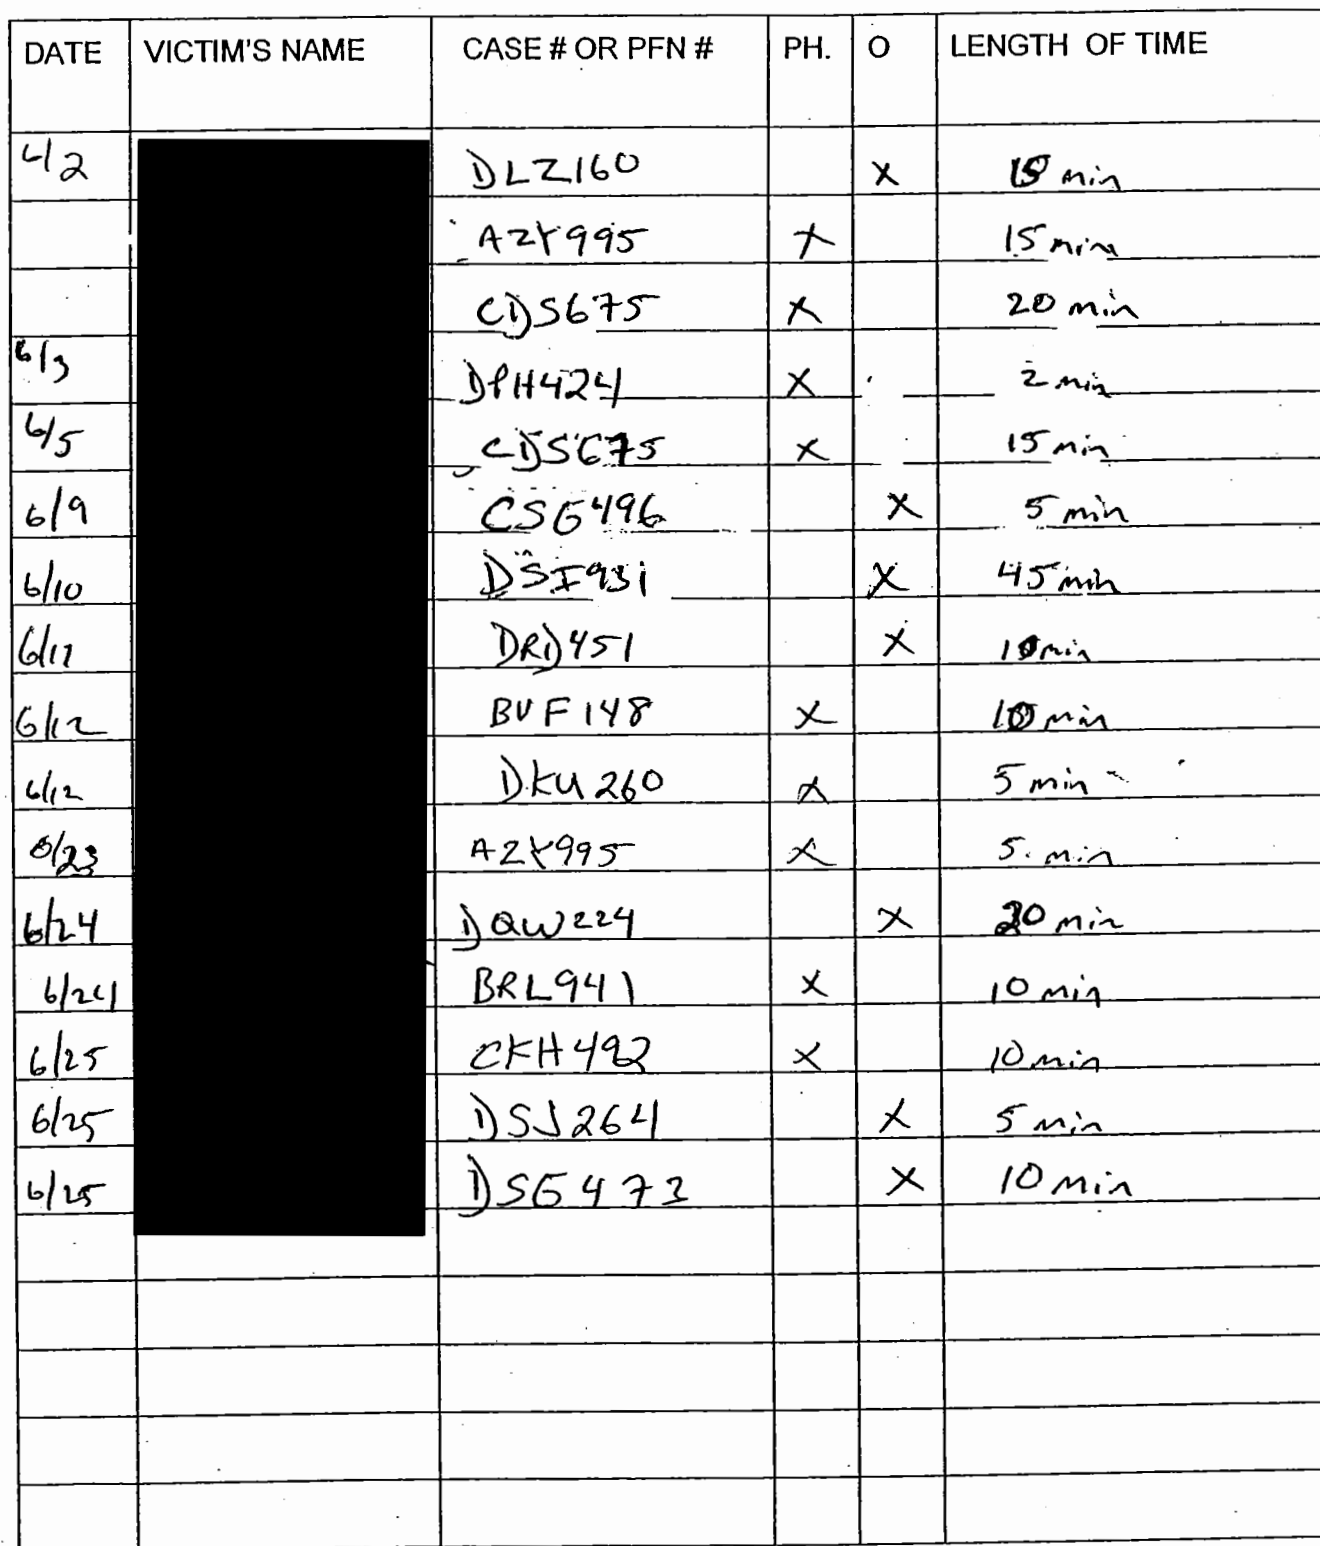 DATE VICTIM'S NAME CASE # OR PFN # PH. O LENGTH OF TIME
6/2 DLZ160 X 15 min
AZY995 X 15 min
CDS675 X 20 min
6/3 DPH424 X 2 min
6/5 CDS675 X 15 min
6/9 CSG496 X 5 min
6/10 DSI931 X 45 min
6/11 DRD451 X 10 min
6/12 BUF148 X 10 min
6/12 DKU260 X 5 min
6/23 AZY995 X 5 min
6/24 DQW224 X 20 min
6/24 BRL941 X 10 min
6/25 CKH492 X 10 min
6/25 DSJ264 X 5 min
6/25 DSG473 X 10 min